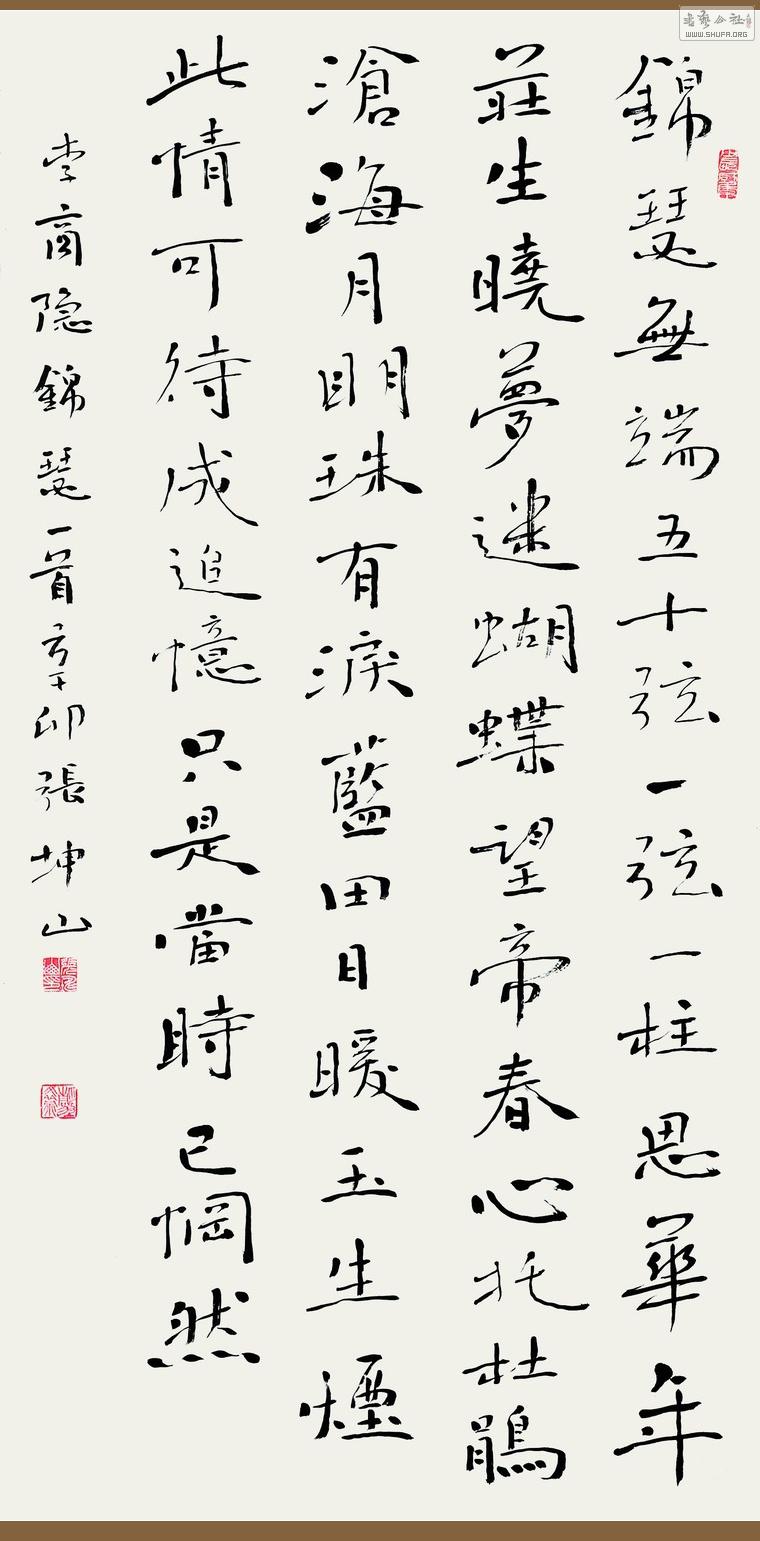 錦瑟無端五十弦一弦一柱思華年
莊生曉夢迷蝴蝶望帝春心托杜鵑
滄海月明珠有淚藍田日暖玉生煙
此情可待成追憶只是當時已惘然
李商隐錦瑟一首辛卯張坤山
書藝公社
WWW.SHUFA.ORG